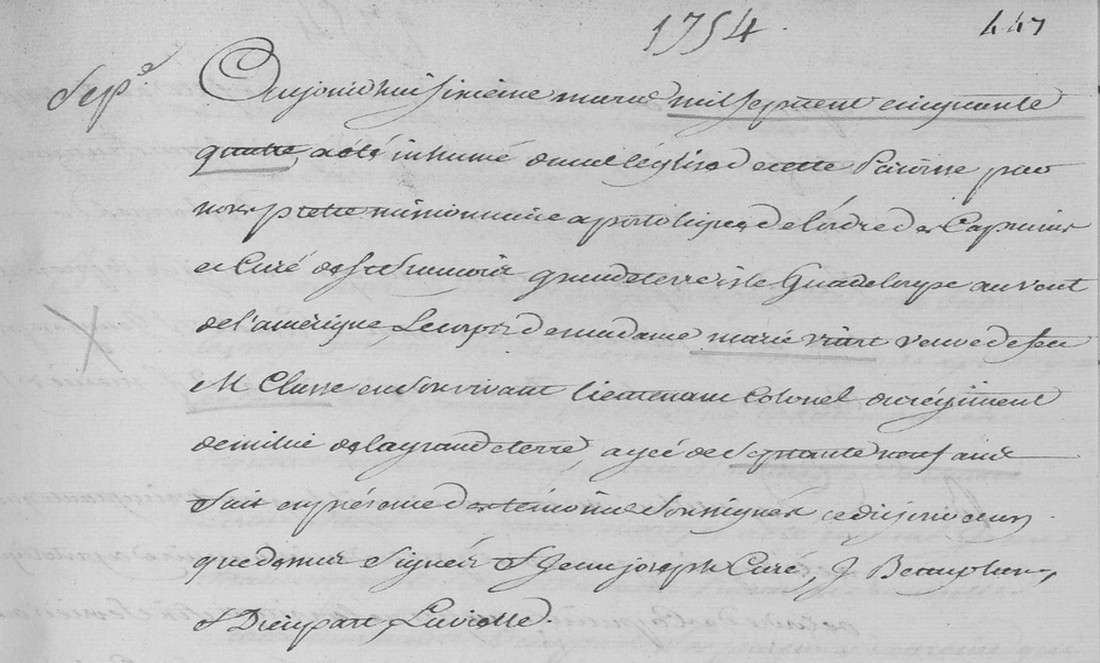 1754. 447
Sep.e Aujourd'hui sixieme mars mil sept cent cinquante
quatre, a été inhumé dans l'église de cette Paroisse par
nous prêtre missionnaire apostolique de l'ordre des Capucins
et Curé de St françois grande terre isle Guadeloupe au vent
de l'amérique, Le corps de madame marie viart veuve de feu
M Classe en son vivant Lieutenant Colonel du régiment
de milice de la grande terre, agée de septante neuf ans
fait en présence des témoins Soussignés ce dis jour
que dessus Signés f. Jean joseph Curé, J Beauplan,